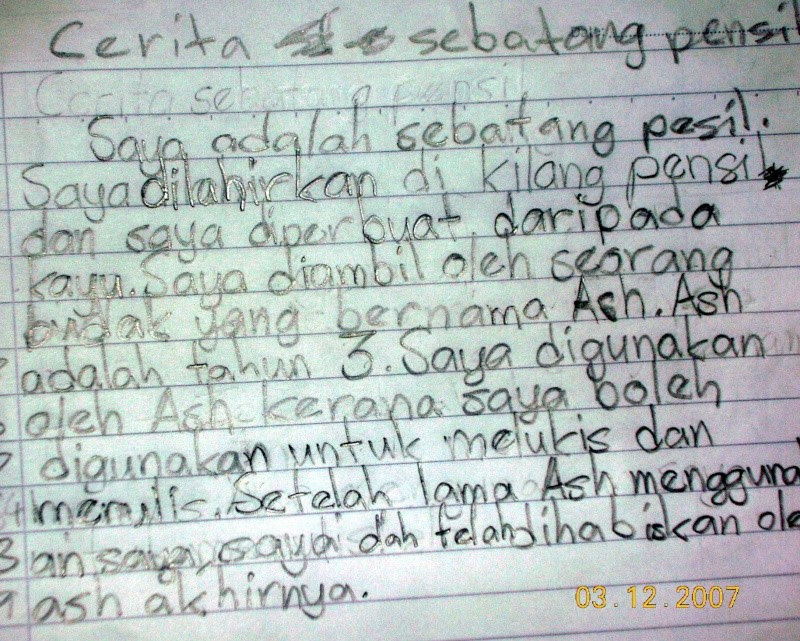 Cerita sebatang pensil
Cerita sebatang pensil
Saya adalah sebatang pesil.
Saya dilahirkan di kilang pensil
dan saya diperbuat daripada
kayu. Saya diambil oleh seorang
budak yang bernama Ash. Ash
adalah tahun 3. Saya digunakan
oleh Ash kerana saya boleh
digunakan untuk melukis dan
menulis. Setelah lama Ash mengguna
an saya, saya dah telah dihabiskan ole
ash akhirnya.
03.12.2007